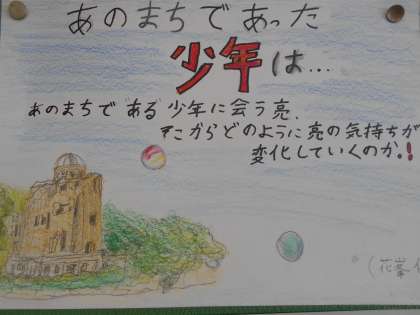 あのまちであった
少年は…
あのまちである少年に会う亮、
そこからどのように亮の気持ちが
変化していくのか!
(花峯